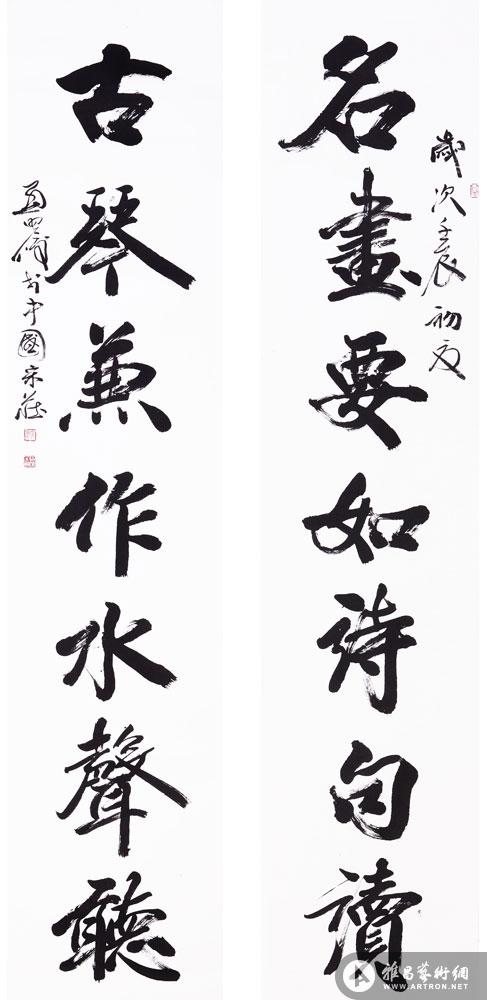 歲次壬辰初夏
名畫要如詩句讀
古琴兼作水聲聽
書於中國宋莊
雅昌藝術網
WWW.ARTRON.NET